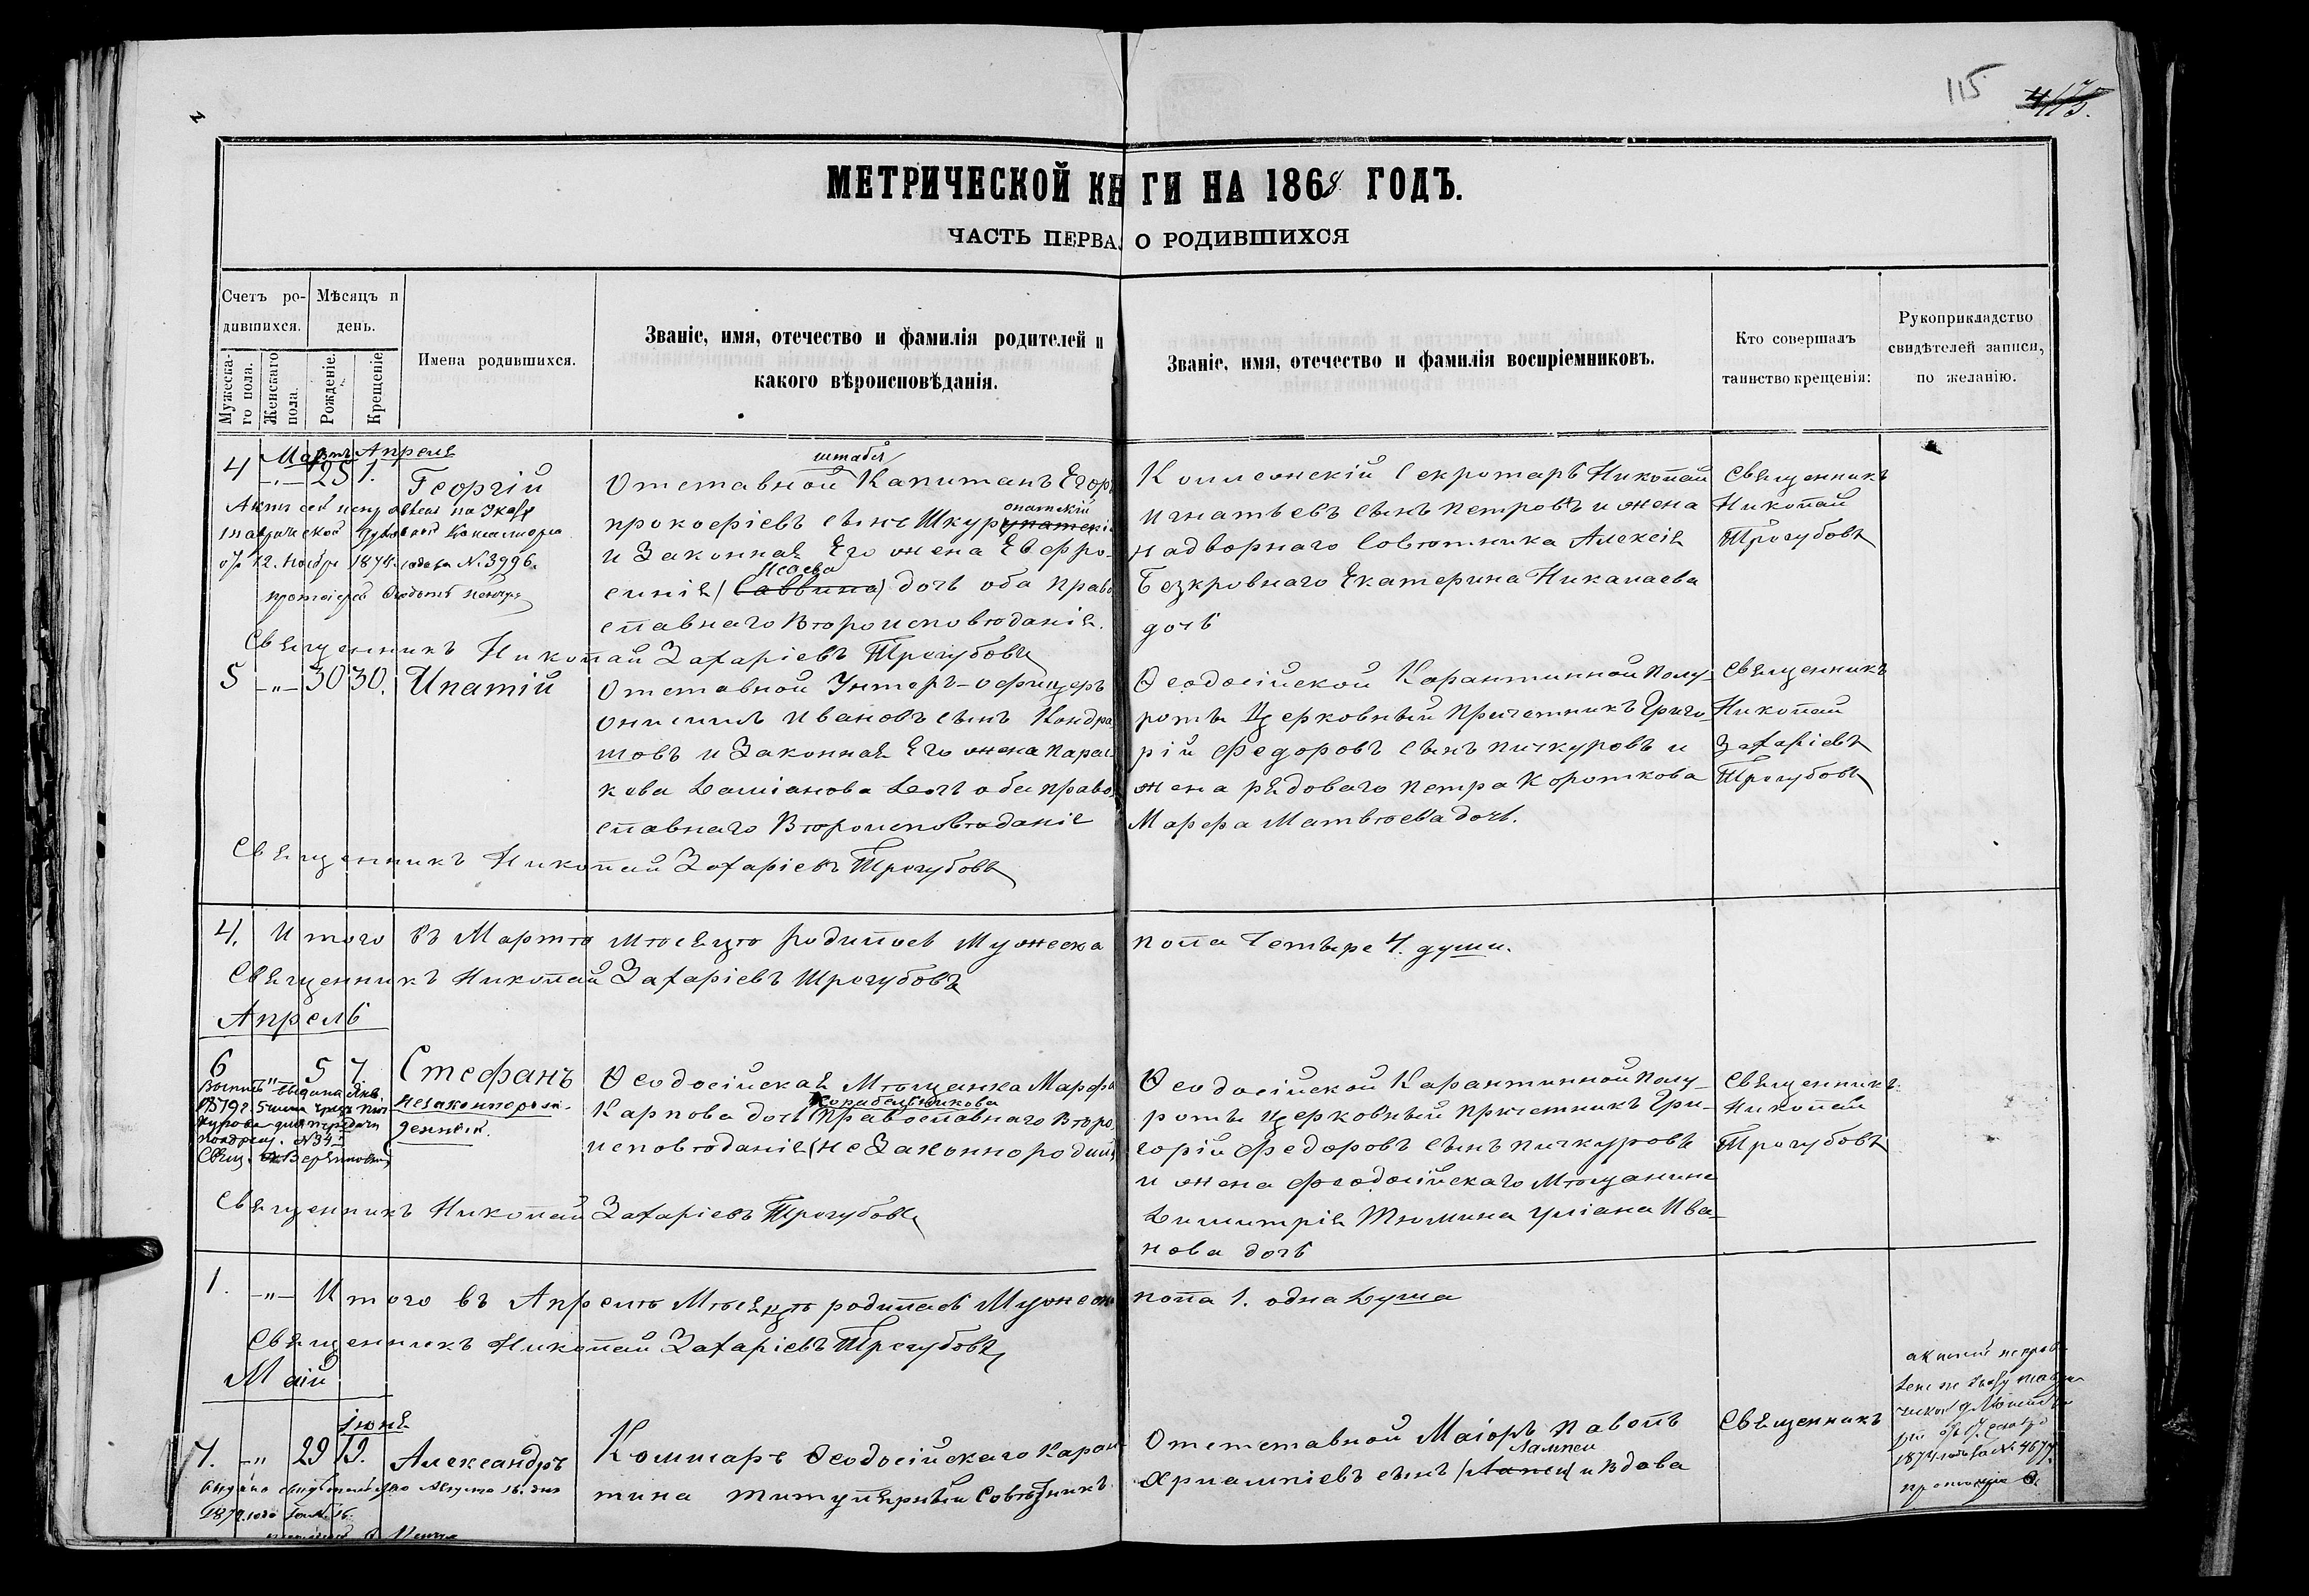 115
4/175.
МЕТРИЧЕСКОЙ КН ГИ НА 1868 ГОДЪ.
ЧАСТЬ ПЕРВА О РОДИВШИХСЯ
Счетъ ро-
дившихся.
Мужеска-
го пола.
Женскаго
пола.
Мѣсяцъ и
день.
Рожденіе.
Крещеніе
Имена родившихся.
Званіе, имя, отечество и фамилія родителей и
какого вѣроисповѣданія.
Званіе, имя, отечество и фамилія воспріемниковъ.
Кто совершалъ
таинство крещенія:
Рукоприкладство
свидѣтелей записи,
по желанію.
Мартъ Апреля
4 -„- 25 1. Георгій
Актъ сей
Таврической Духовной Консисторіи
от 12. Ноября 1874. года за N. 3996.
штабсъ
Отставной Капитанъ Егоръ
онатскій
прокофіевъ сынъ Шкурупатскі
и Законная Его жена Евфро-
Исаева
синія (Саввина) дочь оба Право
славнаго Вѣроисповѣданія.
Коллежскій Секретарь Николай
Игнатьевъ сынъ Петровъ и жена
надворнаго Совѣтника Алексія
Безкровнаго Екатерина Николаева
дочь
Священникъ
Николай
Трегубовъ
Священникъ Николай Захаріевъ Трегубовъ
5 -„- 30 30. Ипатій
Отставной Унторъ-офицеръ
Онисимъ Ивановъ сынъ Кондра
товъ и Законная Его жена Парас
кева Даміанова Дочь оба право
славнаго Вѣроисповѣданія
Ѳеодосійской Карантинной Полу-
роты Церковный Причетникъ Григо
рій Федоровъ сынъ Пичкуровъ и
жена рядоваго Петра Короткова
Марфа Матвѣева дочь.
Священникъ
Николай
Захаріевъ
Трегубовъ
Священникъ Николай Захаріевъ Трегубовъ
4. Итого въ Мартѣ Мѣсяцѣ родилось Мужеска пола Четыре 4. души.
Священникъ Николай Захаріевъ Трегубовъ
Апрель
6 „ 5 7. Стефанъ
незаконнорож-
денный.
Ѳеодосійская Мѣщанка Марфа
Корабельникова
Карпова дочь Православнаго Вѣро
исповѣданія (не Законнородный
Ѳеодосійской Карантинной Полу-
роты Церковный Причетникъ Гри-
горій Федоровъ сынъ Пичкуровъ
и жена Феодосійскаго Мѣщанина
Димитрія Тюмина Уліана Ива-
нова дочь
Священникъ
Николай
Трегубовъ
Священникъ Николай Захаріевъ Трегубовъ
1. -„- Итого въ Апрелѣ Мѣсяцѣ родилось Мужеска пола 1. одна Душа
Священникъ Николай Захаріевъ Трегубовъ
Маій
іюня
7. -„ 29 19. Александръ
Коммисаръ Ѳеодосійскаго Каран
тина Титулярный Совѣтникъ
Отстставной Маіоръ Павелъ
Лампси
Харлампіевъ сынъ (Лапси) и Вдова
Священникъ
1874 года за N. 4677.